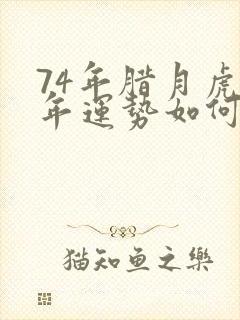 74年腊月虎
年運勢如何
猫知鱼之樂